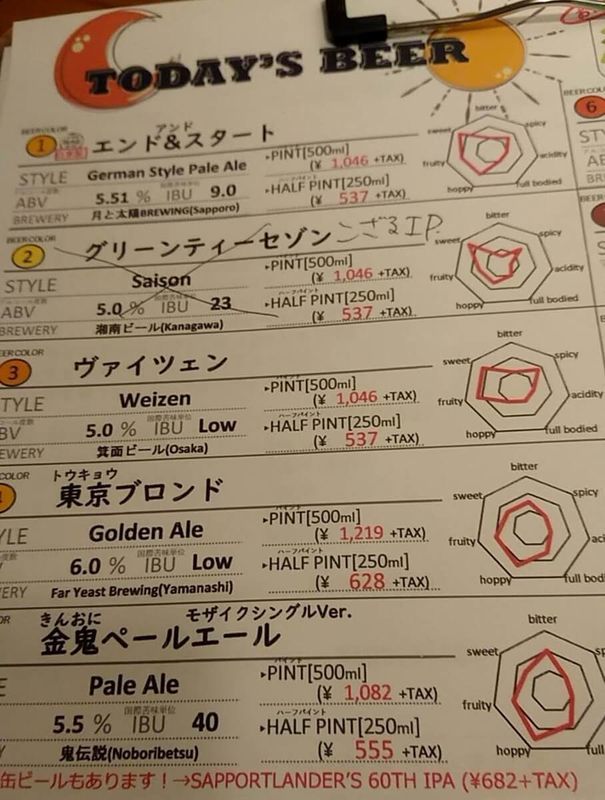 TODAY'S BEER
BEER COLOR
1
アンド
エンド&スタート
STYLE German Style Pale Ale
ABV 5.51 % IBU 9.0
BREWERY 月と太陽BREWING(Sapporo)
▸PINT[500ml]
(¥ 1,046 +TAX)
ハーフパイント
▸HALF PINT[250ml]
(¥ 537 +TAX)
bitter
sweet spicy
fruity acidity
hoppy full bodied
BEER COLOR
2
グリーンティーセゾン こざるIP.
STYLE Saison
ABV 5.0 % 国際苦味単位 IBU 23
BREWERY 湘南ビール(Kanagawa)
▸PINT[500ml]
(¥ 1,046 +TAX)
ハーフパイント
▸HALF PINT[250ml]
(¥ 537 +TAX)
bitter
sweet spicy
fruity acidity
hoppy full bodied
EER COLOR
3
ヴァイツェン
TYLE Weizen
BV 5.0 % 国際苦味単位 IBU Low
EWERY 箕面ビール(Osaka)
▸PINT[500ml]
(¥ 1,046 +TAX)
ハーフパイント
▸HALF PINT[250ml]
(¥ 537 +TAX)
bitter
sweet spicy
fruity acidity
hoppy full bodied
COLOR
トウキョウ
東京ブロンド
YLE Golden Ale
6.0 % 国際苦味単位 IBU Low
ERY Far Yeast Brewing(Yamanashi)
▸PINT[500ml]
(¥ 1,219 +TAX)
ハーフパイント
▸HALF PINT[250ml]
(¥ 628 +TAX)
bitter
sweet spicy
fruity aci
hoppy full bod
OR
きんおに モザイクシングルVer.
金鬼ペールエール
E Pale Ale
5.5 % 国際苦味単位 IBU 40
Y 鬼伝説(Noboribetsu)
パイント
▸PINT[500ml]
(¥ 1,082 +TAX)
ハーフパイント
▸HALF PINT[250ml]
(¥ 555 +TAX)
bitter
sweet sp
fruity
hoppy full
缶ビールもあります!→SAPPORTLANDER'S 60TH IPA (¥682+TAX)
BEER COLO
6
ST
AB
BRE
BEER
S
A
B